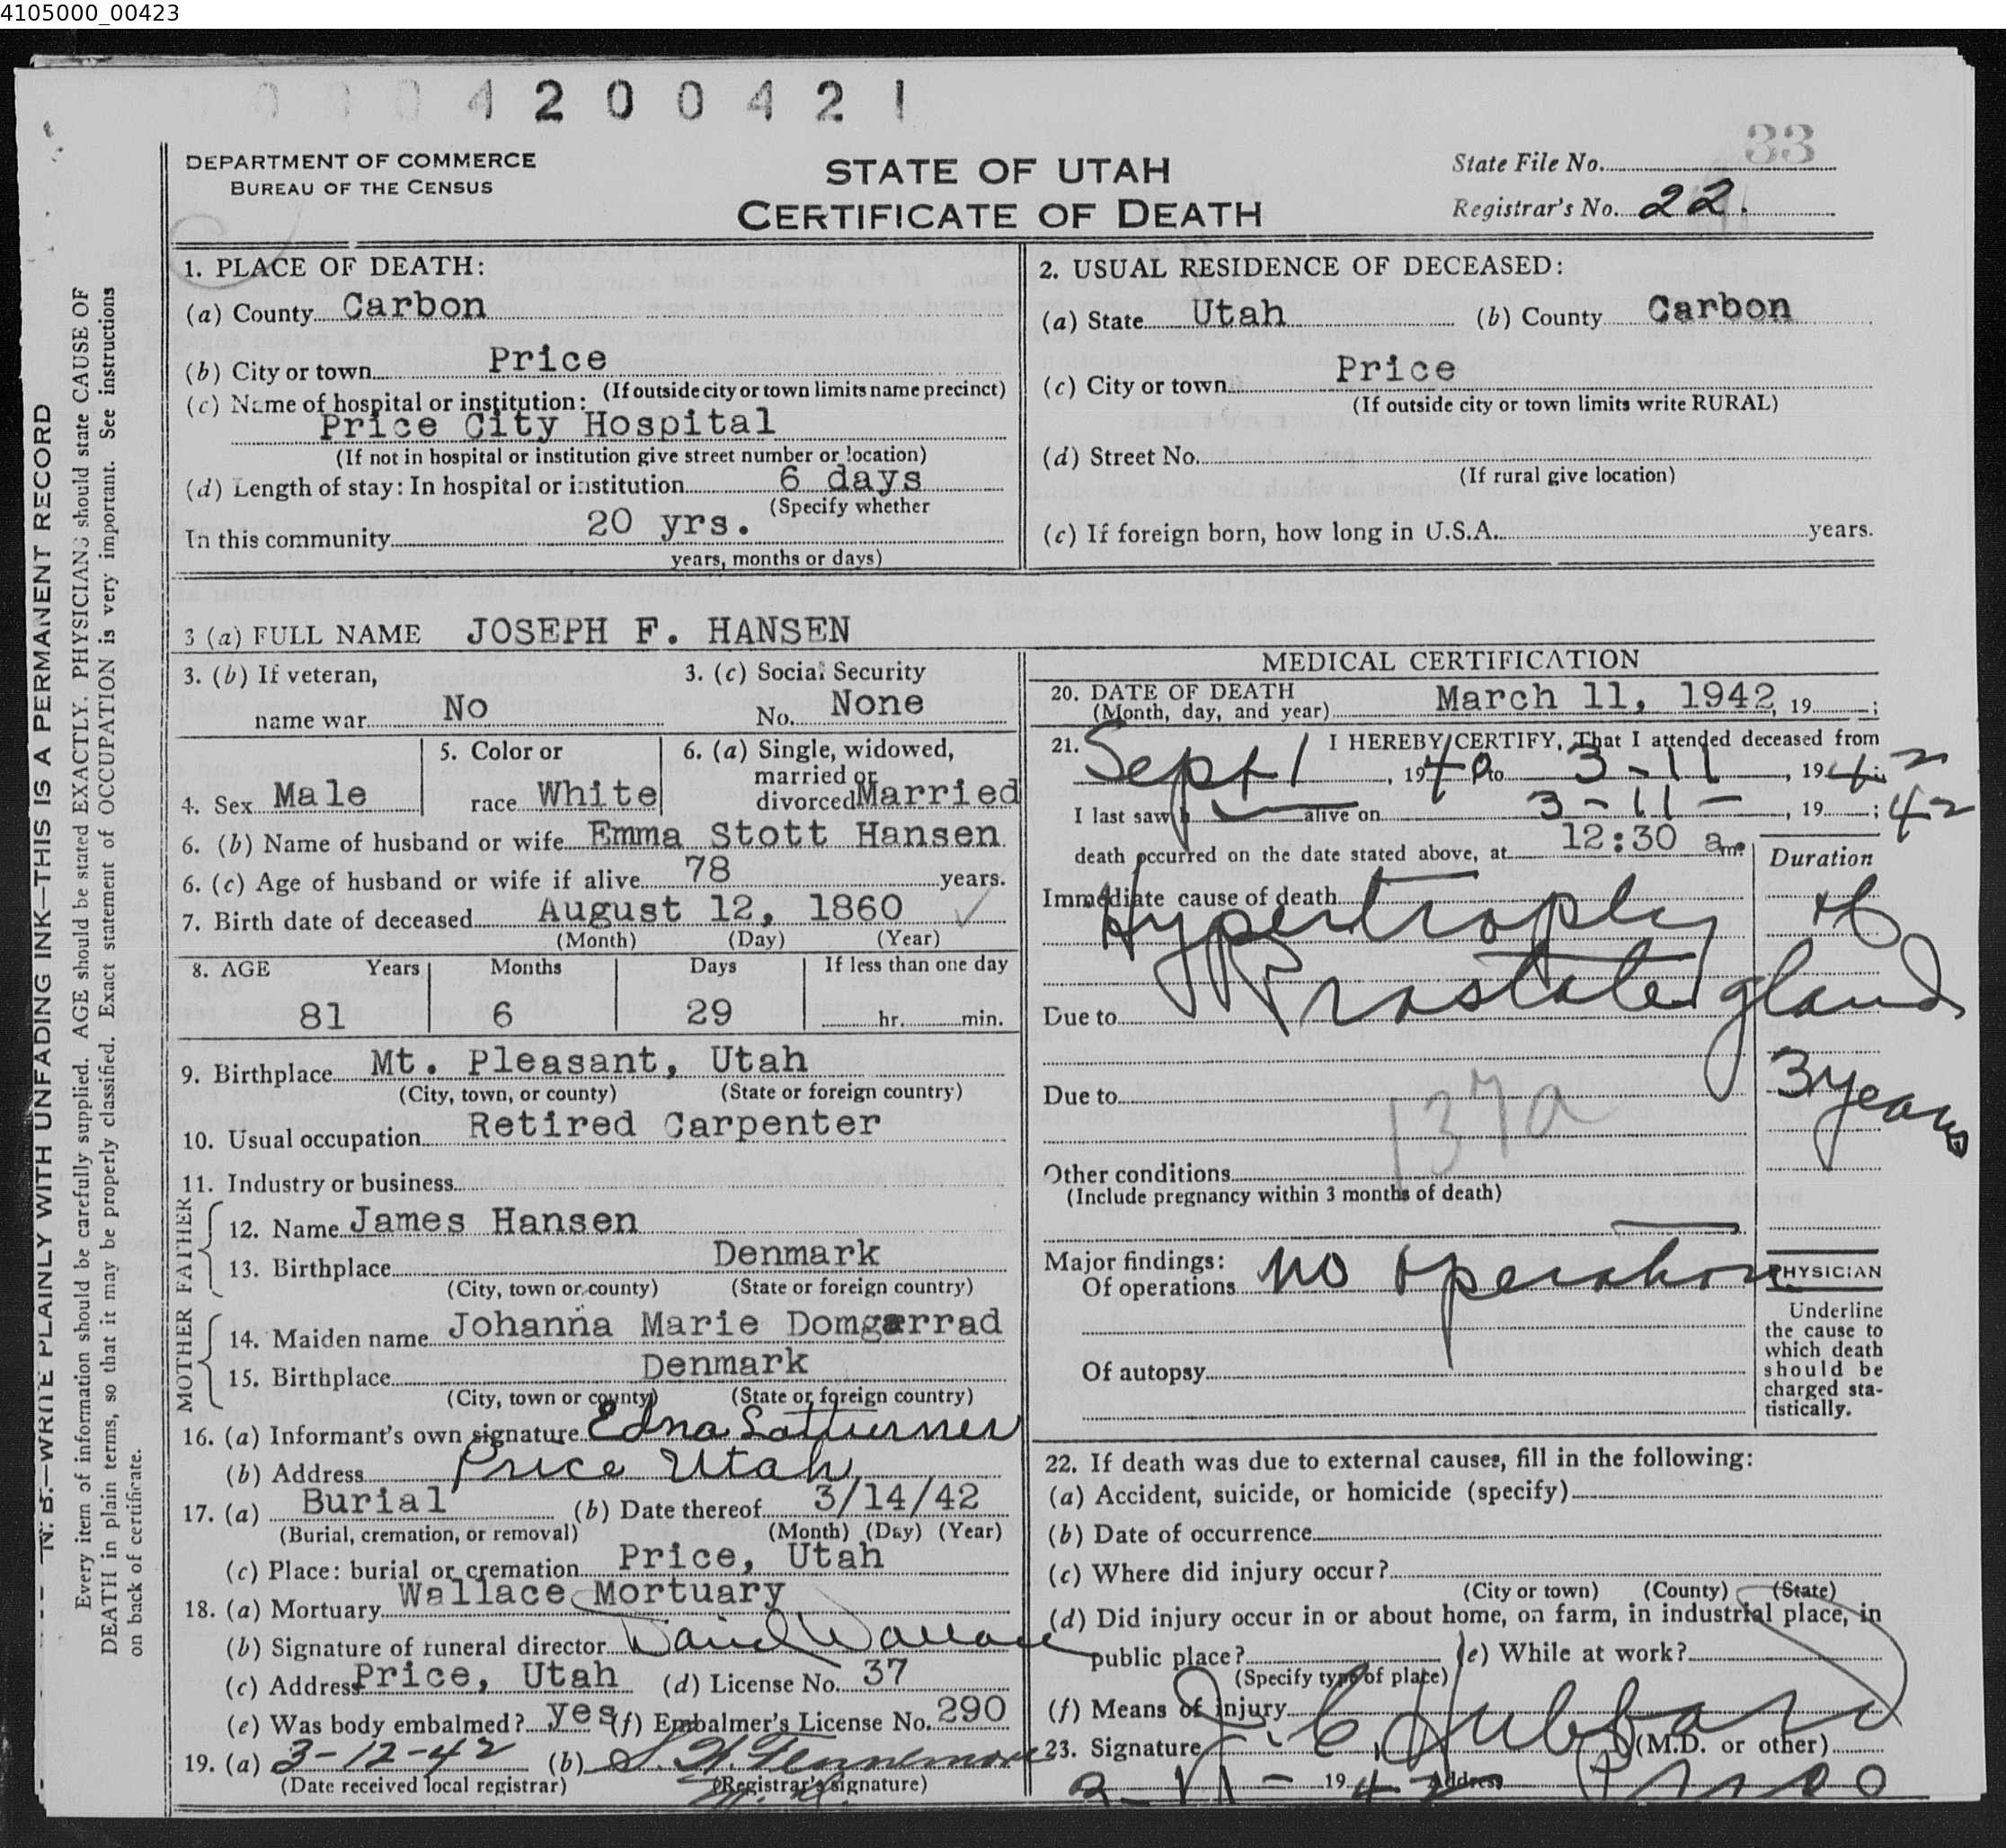 4105000_00423
0004200421
DEPARTMENT OF COMMERCE
BUREAU OF THE CENSUS
STATE OF UTAH
CERTIFICATE OF DEATH
State File No. 33
Registrar's No. 22.
N. B.—WRITE PLAINLY WITH UNFADING INK—THIS IS A PERMANENT RECORD
Every item of information should be carefully supplied. AGE should be stated EXACTLY. PHYSICIANS should state CAUSE OF
DEATH in plain terms, so that it may be properly classified. Exact statement of OCCUPATION is very important. See instructions
on back of certificate.
1. PLACE OF DEATH:
(a) County Carbon
(b) City or town Price
(If outside city or town limits name precinct)
(c) Name of hospital or institution:
Price City Hospital
(If not in hospital or institution give street number or location)
(d) Length of stay: In hospital or institution 6 days
(Specify whether
In this community 20 yrs.
years, months or days)
2. USUAL RESIDENCE OF DECEASED:
(a) State Utah (b) County Carbon
(c) City or town Price
(If outside city or town limits write RURAL)
(d) Street No.
(If rural give location)
(c) If foreign born, how long in U.S.A. years.
3 (a) FULL NAME JOSEPH F. HANSEN
3. (b) If veteran, 3. (c) Social Security
name war No No. None
5. Color or 6. (a) Single, widowed,
married or
4. Sex Male race White divorced Married
6. (b) Name of husband or wife Emma Stott Hansen
6. (c) Age of husband or wife if alive 78 years.
7. Birth date of deceased August 12, 1860
(Month) (Day) (Year)
8. AGE Years Months Days If less than one day
81 6 29 hr. min.
9. Birthplace Mt. Pleasant, Utah
(City, town, or county) (State or foreign country)
10. Usual occupation Retired Carpenter
11. Industry or business
FATHER
12. Name James Hansen
13. Birthplace Denmark
(City, town or county) (State or foreign country)
MOTHER
14. Maiden name Johanna Marie Domgarrad
15. Birthplace Denmark
(City, town or county) (State or foreign country)
16. (a) Informant's own signature Edna
(b) Address Price Utah
17. (a) Burial (b) Date thereof 3/14/42
(Burial, cremation, or removal) (Month) (Day) (Year)
(c) Place: burial or cremation Price, Utah
18. (a) Mortuary Wallace Mortuary
(b) Signature of funeral director David Wallace
(c) Address Price, Utah (d) License No. 37
(e) Was body embalmed? yes (f) Embalmer's License No. 290
19. (a) 3-12-42 (b) S. W. Fennemore
(Date received local registrar) (Registrar's signature)
MEDICAL CERTIFICATION
20. DATE OF DEATH
(Month, day, and year) March 11, 1942, 19 ;
21. I HEREBY CERTIFY, That I attended deceased from
Sept 1, 1940 to 3-11, 1942
I last saw h alive on 3-11-, 19 ; 42
death occurred on the date stated above, at 12:30 a.m.
Duration
Immediate cause of death
Hypertrophy of
Prostate gland
Due to
3 years
Due to
137a
Other conditions
(Include pregnancy within 3 months of death)
Major findings:
Of operations no operation
Of autopsy
PHYSICIAN
Underline
the cause to
which death
should be
charged sta-
tistically.
22. If death was due to external causes, fill in the following:
(a) Accident, suicide, or homicide (specify)
(b) Date of occurrence
(c) Where did injury occur?
(City or town) (County) (State)
(d) Did injury occur in or about home, on farm, in industrial place, in
public place? (e) While at work?
(Specify type of place)
(f) Means of injury
23. Signature J. C. Hubbard (M.D. or other)
19 42 Address Price